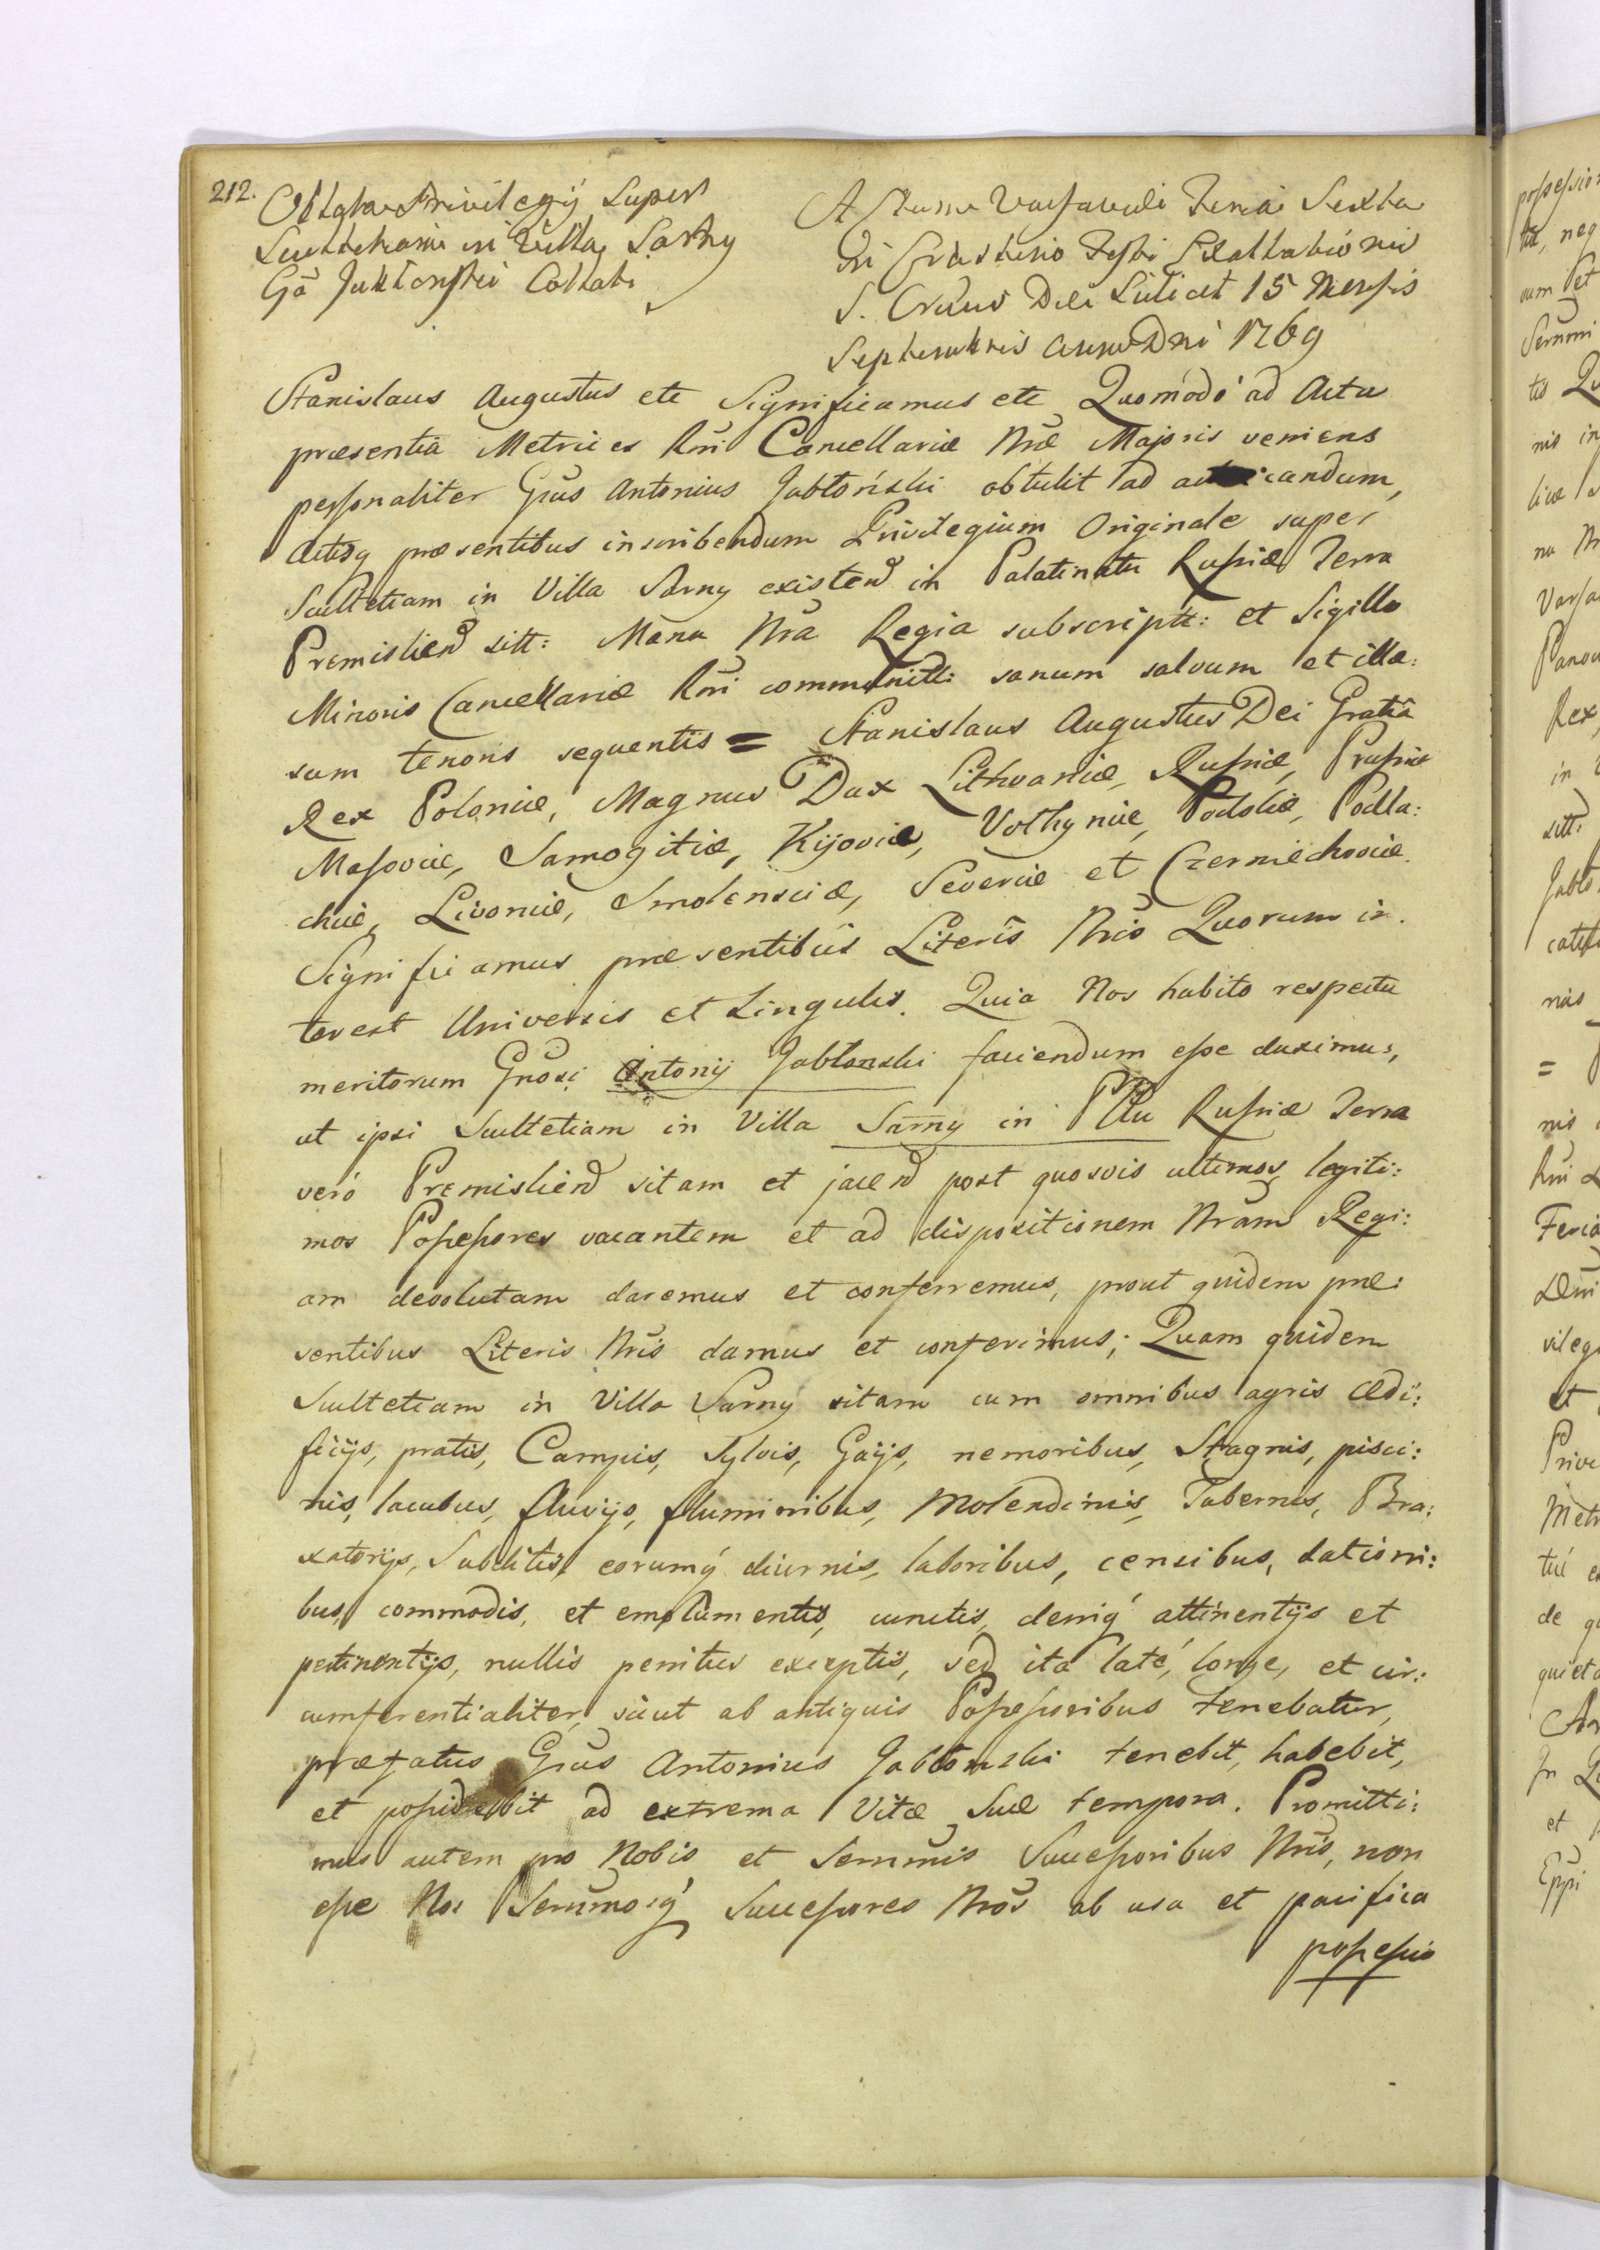 212.
Oblata Privilegij super
Scultetiam in Villa Sarny
Gō Jabłonski Collati
Actum Varsaviæ Feria Sexta
in Crastino Festi Exaltationis
S. Crucis Die Scilicet 15 Mensis
Septembris anno Dni 1769
Stanislaus Augustus ete Significamus ete Quomodó ad Acta
præsentia Metrices Rñi Cancellariæ Nræ Majoris veniens
personaliter Gñus Antonius Jabłoński obtulit ad
Actisq præsentibus inscribendum Privilegium Originale super
Scultetiam in Villa Sarny existen in Palatinatu Russiæ Terra
Premislien sitt: Manu Nrā Regia subscriptt: et Sigillo
Minoris Cancellariæ Rñi communitt: sanum salvum et illæ:
sum tenoris sequentis = Stanislaus Augustus Dei Gratiâ
Rex Poloniæ, Magnus Dux Lithvaniæ, Russiæ, Prussiæ
Masoviæ, Samogitiæ, Kijoviæ, Volhyniæ, Podoliæ, Podla:
chiæ, Livoniæ, Smolensciæ, Severiæ et Czerniechoviæ.
Significamus præsentibus Literis Nris Quorum in.
terest Universis et Singulis. Quia Nos habito respectu
meritorum Gnosi Antonij Jabłonski faciendum esse duximus,
ut ipsi Scultetiam in Villa Sarny in Pttu Russiæ Terra
veró Premislien sitam et jacen post quosvis ultimos legiti:
mos Possessores vacantem et ad dispositionem Nram Regi:
am devolutam daremus et conferremus, prout quidem præ:
sentibus Literis Nris damus et conferimus; Quam quidem
Scultetiam in Villa Sarny sitam cum omnibus agris ædi:
ficijs, pratis, Campis, Sylvis, Gaijs, nemoribus, Stagnis, pisci:
nis, lacubus, fluvijs, fluminibus, Molendinis, Tabernis, Bra:
xatorijs, Subditis, eorumq diurnis, laboribus, censibus, dationi:
bus, commodis, et emolumentis, cunctis, deniq attinentijs et
pertinentijs, nullis penitus exceptis, sed ita laté, longe, et cir:
cumferentialiter, sicut ab antiquis Possessoribus tenebatur,
præfatus Gnus Antonius Jabłonski tenebit, habebit,
et possidebit ad extrema Vitæ Suæ tempora. Promitti:
mus autem pro Nobis et Serñmis Successoribus Nris, non
esse Nos Serñmosq Successores Nros ab usu et pacifica
possessio